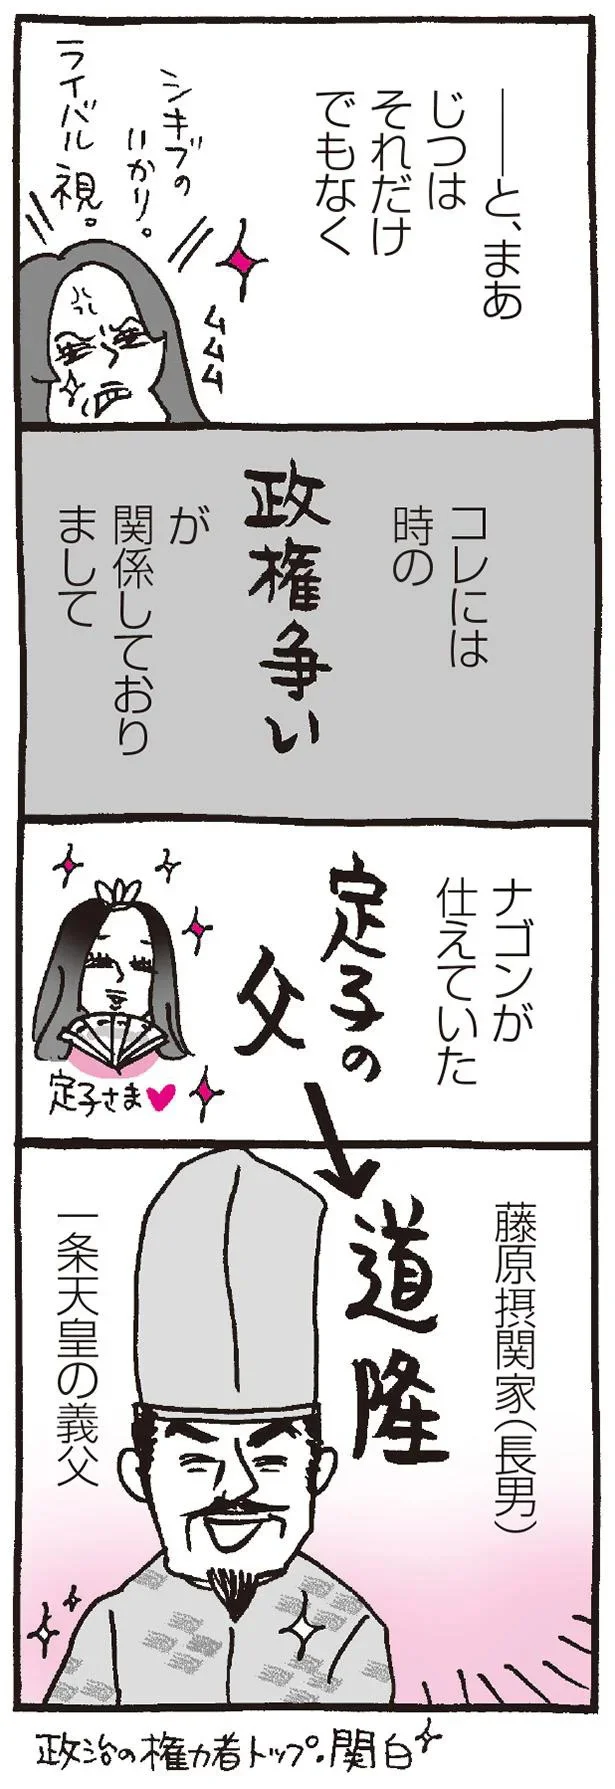 ――と、まあ
じつは
それだけ
でもなく
シキブの
いかり。
ライバル視。
ムムム
コレには
時の
政権争い
が
関係しており
まして
ナゴンが
仕えていた
定子の
父
定子さま♥
藤原摂関家(長男)
道隆
一条天皇の義父
政治の権力者トップ・関白